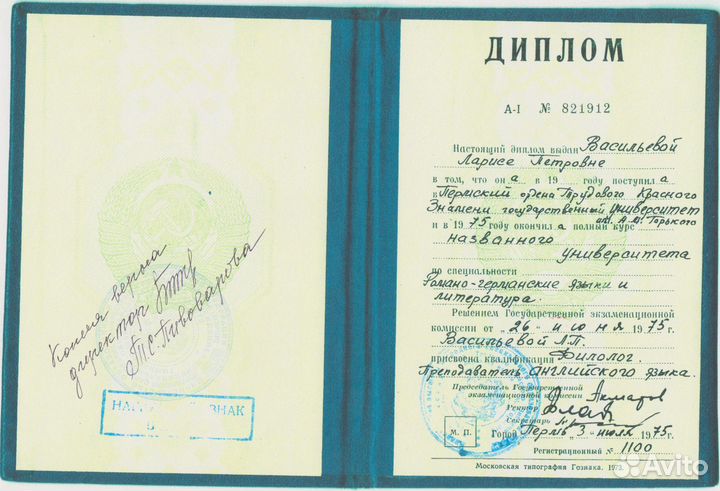 Копия верна
директор
Т.С. Пивоварова
ЗНАК
ДИПЛОМ
А-I № 821912
Настоящий диплом выдан Васильевой
Ларисе Петровне
в том, что он а в 19 году поступил а
в Пермский ордена Трудового Красного
Знамени государственный университет
им. А.М. Горького
и в 1975 году окончил а полный курс
названного
университета
по специальности
Романо-германские языки и
литература.
Решением Государственной экзаменационной
комиссии от "26" июня 1975 г.
Васильевой Л.П.
присвоена квалификация Филолог.
Преподаватель английского языка.
Председатель Государственной
экзаменационной комиссии
Ректор
Секретарь
М. П.
Город Пермь "3" июля 1975 г.
Регистрационный № 1100
Московская типография Гознака. 1973.
Avito